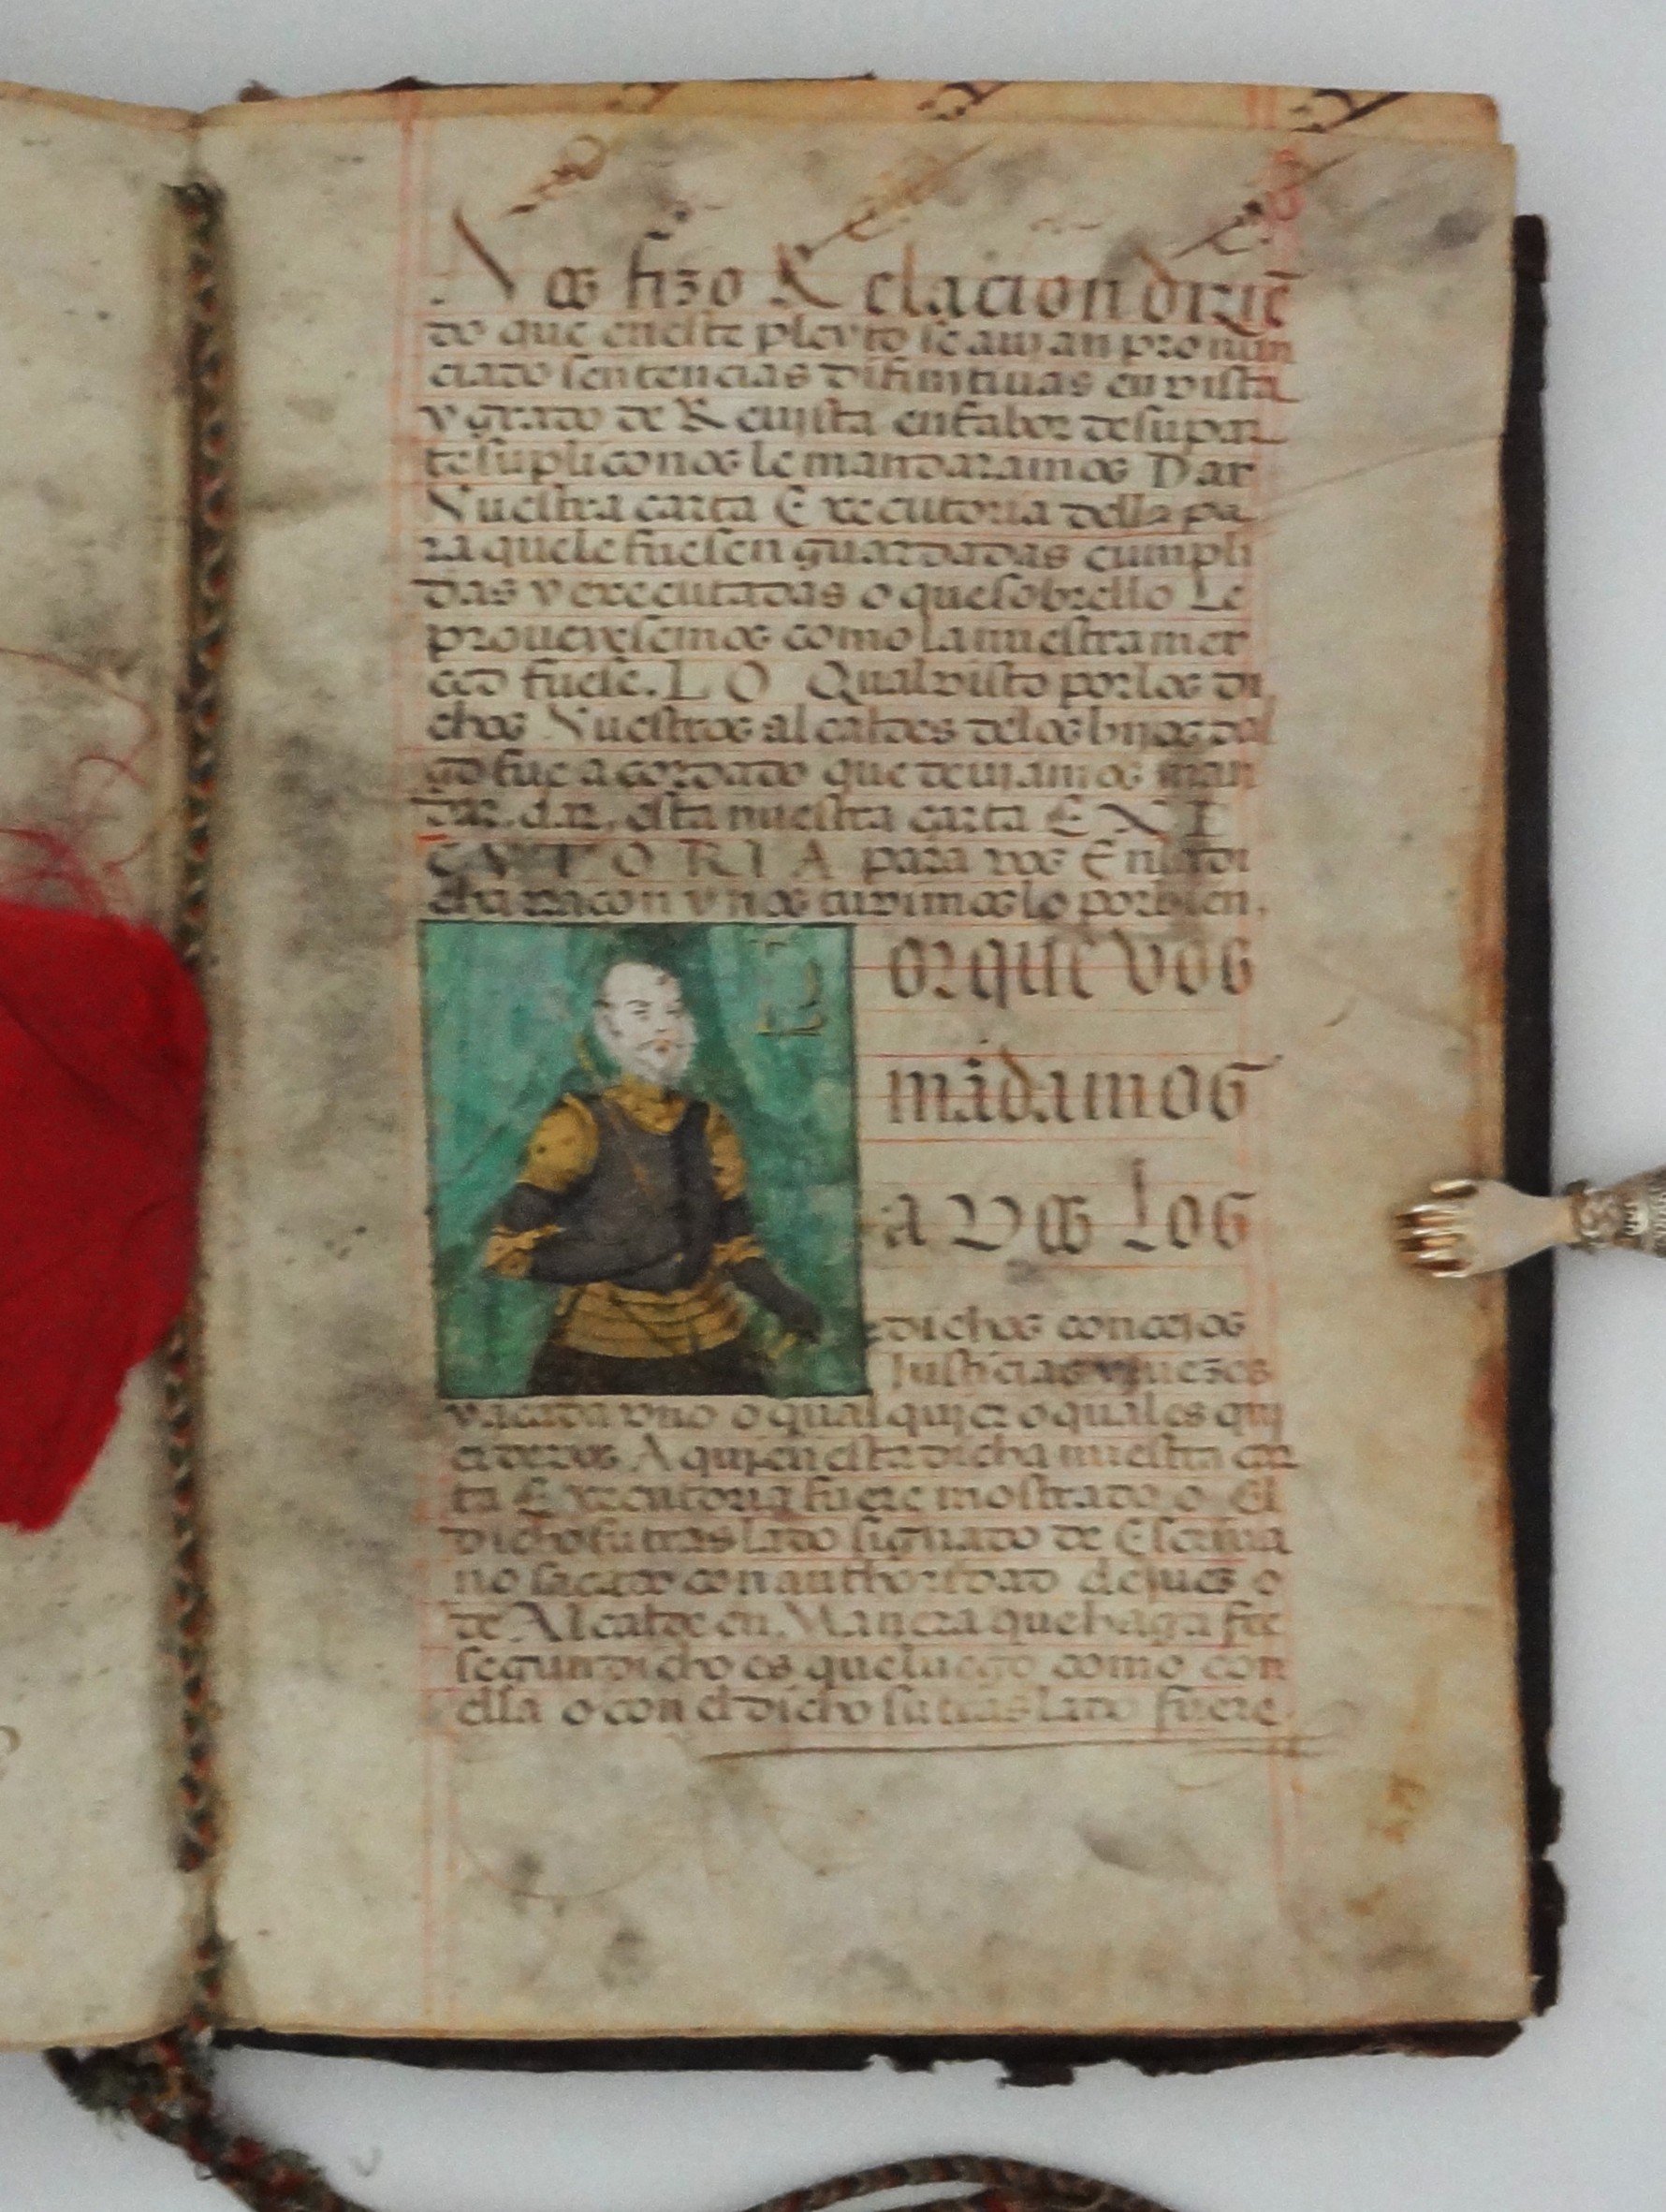 Nos hizo Relacion diziē
do que eneste pleyto se auian pronun
ciado sentencias difinitiuas en vista
y grado de Reuista enfabor desupar
te suplico nos le mandaramos Dar
Nuestra carta Executoria dellas pa
ra quele fuesen guardadas cumpli
das y executadas o quesobrello Le
proueyesemos como lanuestra mer
ced fuese. LO Qual visto por los di
chos Nuestros alcaldes delos hijos dal
go fue acordado que deuiamos man
dar. dar. esta nuestra carta EXE
CVTORIA para vos En la di
cha rraçon y nos tuvimos lo por bien.
orque vos
mādamos
a vos los
dichos concejos
Justicias y juezes
y a cada vno o qualquier o quales qui
er de vos A quien esta dicha nuestra car
ta Executoria fuere mostrado o El
dicho su traslado signado de Escriua
no sacado con authoridad de jues o
de Alcalde en Manera que haga fee
segun dicho es que luego como con
ella o con el dicho su traslado fuere